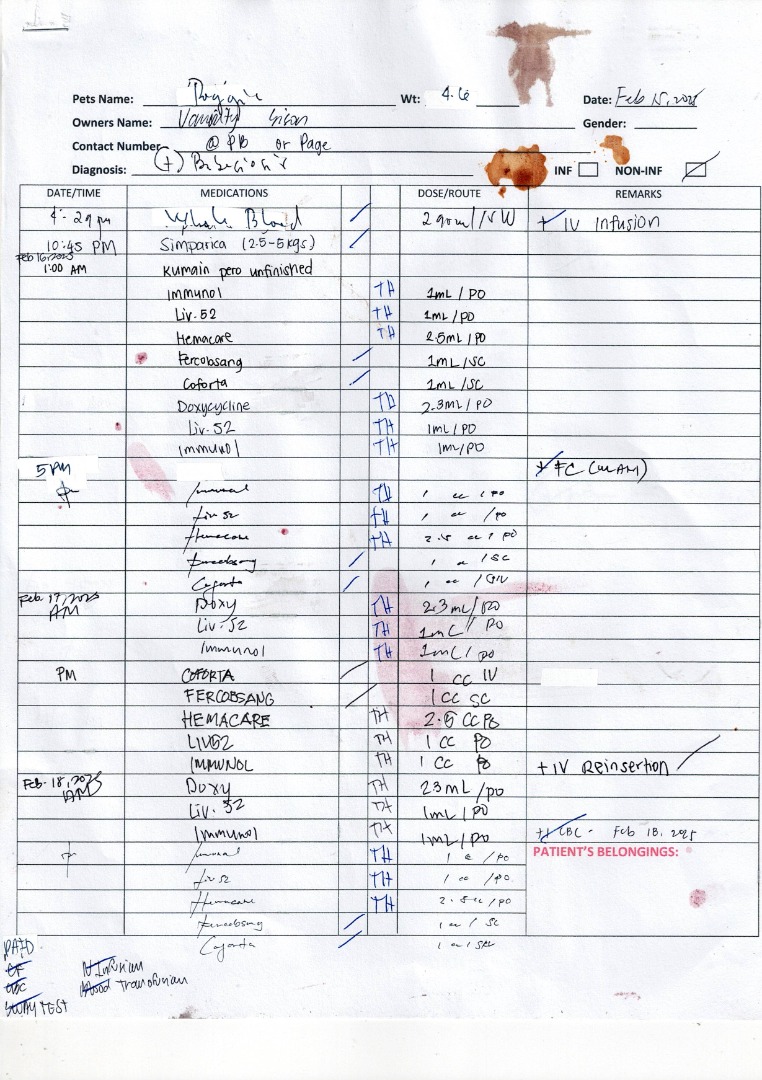 Pets Name: Wt: 4.6 Date: Feb 15, 2025
Owners Name: Gender:
Contact Number @ PB or Page
Diagnosis: (+) INF NON-INF
DATE/TIME MEDICATIONS DOSE/ROUTE REMARKS
Whole Blood + IV Infusion
10:45 PM Simparica (2.5-5kgs)
Feb 16, 2025
1:00 AM Kumain pero unfinished
Immunol TH 1mL / PO
Liv. 52 TH 1mL / PO
Hemacare TH 2.5mL / PO
Fercobsang 1mL / SC
Coforta 1mL / SC
Doxycycline 2.3mL / PO
Liv. 52 TH 1mL / PO
Immunol TH 1mL / PO
5 PM + FC
Immunol TH 1 cc / PO
Liv 52 TH 1 cc / PO
Hemacare TH 2.5 cc / PO
Fercobsang 1 cc / SC
Coforta 1 cc /
Feb. 17, 2025
AM Doxy TH 2.3 mL / PO
Liv. 52 TH 1mL / PO
Immunol TH 1mL / PO
PM COFORTA 1 CC IV
FERCOBSANG 1 CC SC
HEMACARE TH 2.5 CC PO
LIV52 TH 1 CC PO
IMMUNOL TH 1 CC PO + IV Reinsertion
Feb. 18, 2025
AM Doxy TH 23 mL / PO
Liv. 52 TH 1mL / PO
Immunol TH 1mL / PO CBC - Feb 18, 2025
PATIENT'S BELONGINGS:
Immunol TH 1 cc / PO
Liv 52 TH 1 cc / PO
Hemacare TH 2.5 cc / PO
Fercobsang 1 cc / SC
Coforta 1 cc /
PAID
CF IV Infusion
CBC Blood Transfusion
TEST